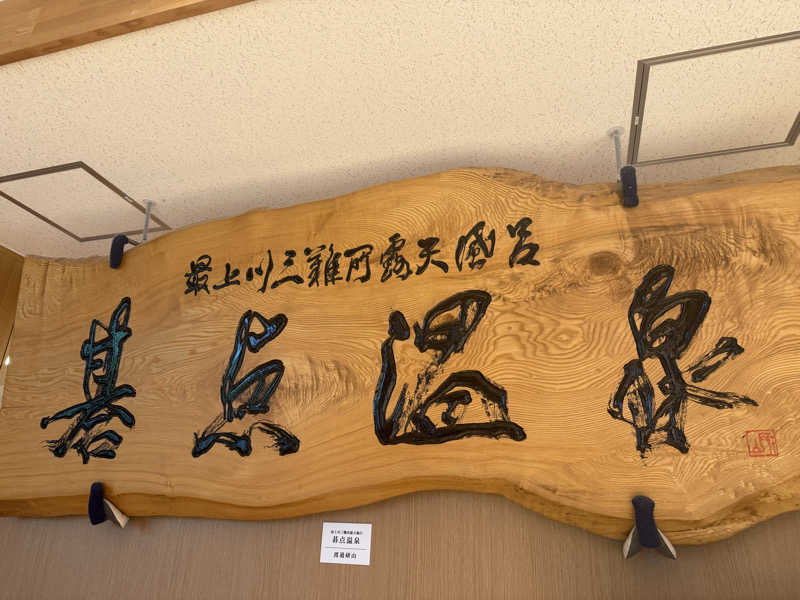 最上川三難所露天風呂
碁点温泉
最上川三難所露天風呂
碁点温泉